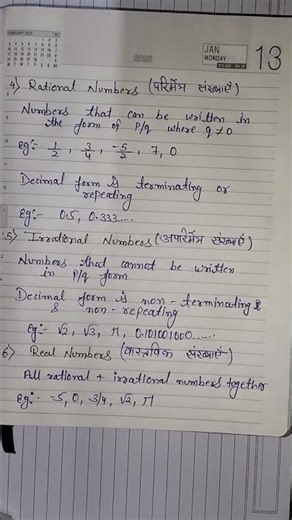 FEBRUARY 2025
2025
JAN
MONDAY
13
4) Rational Numbers (परिमेय संख्याएँ)
Numbers that can be written
in the form of P/q where q ≠ 0
Eg:- 1/2, 3/4, -5/2, 7, 0
Decimal form is terminating or
repeating
Eg:- 0.5, 0.333....
5) Irrational Numbers (अपरिमेय संख्याएँ)
Numbers that cannot be written
in P/q form
Decimal form is non-terminating &
& non-repeating
Eg:- √2, √3, π, 0.101001000......
6) Real Numbers (वास्तविक संख्याएँ)
All rational + irrational numbers together
Eg:- -5, 0, 3/4, √2, π